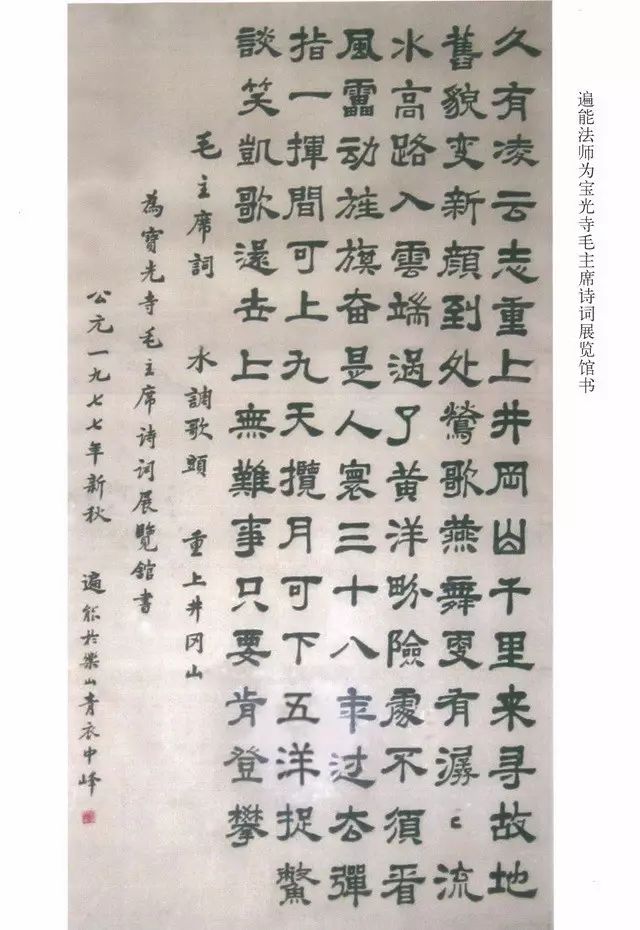 遍能法师为宝光寺毛主席诗词展览馆书
久有凌云志重上井冈山千里来寻故地
舊貌变新顔到处鶯歌燕舞更有潺〻流
水高路入雲端過了黄洋畍險處不須看
風雷动旌旗奋是人寰三十八年过去彈
指一揮間可上九天攬月可下五洋捉鱉
談笑凱歌還世上無難事只要肯登攀
毛主席詞 水調歌頭 重上井冈山
為寶光寺毛主席诗词展覽館書
公元一九七七年新秋 遍能於樂山青衣中峰